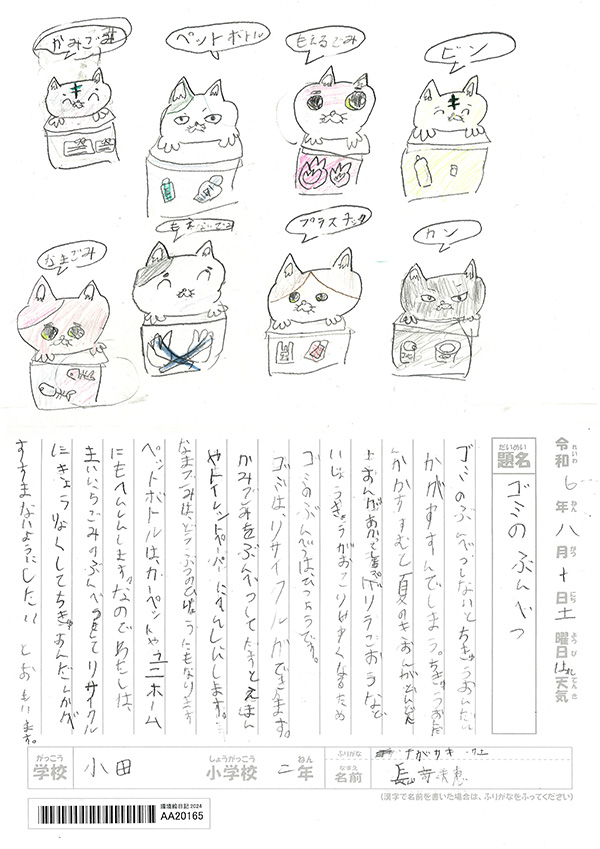 かみごみ
ペットボトル
もえるごみ
ビン
なまごみ
もえないごみ
プラスチック
カン
令和 6年 八月 十日 土曜日 はれ 天気
れいわ ねん がつ にち ようび てんき
だいめい
題名 ゴミのぶんべつ
ゴミのぶんべつしないとちきゅうおんだん
かがすすんでしまう。ちきゅうおんだ
んかがすすむと夏のきおんがどんどん
上
ゲリラごううなど
いじょうきしょうがおこりやすくなるため
ゴミのぶんべつはひつようです。
ゴミは、リサイクルができます。
かみごみをぶんべつしてだすとえほん
やトイレットペーパーにへんしんします。
なまごみは、どうぶつのひりょうにもなります
ペットボトルは、カーペットやユニホーム
にもへんしんします。なのでわたしは、
ごみのぶんべつをしてリサイクル
にきょうりょくしてちきゅうおんだんかが
すすまないようにしたい とおもいます。
がっこう
学校 小田
しょうがっこう
小学校 二 ねん 年
ふりがな
なまえ
名前 長
(漢字で名前を書いた場合は、ふりがなをふってください)
環境絵日記2024
AA20165